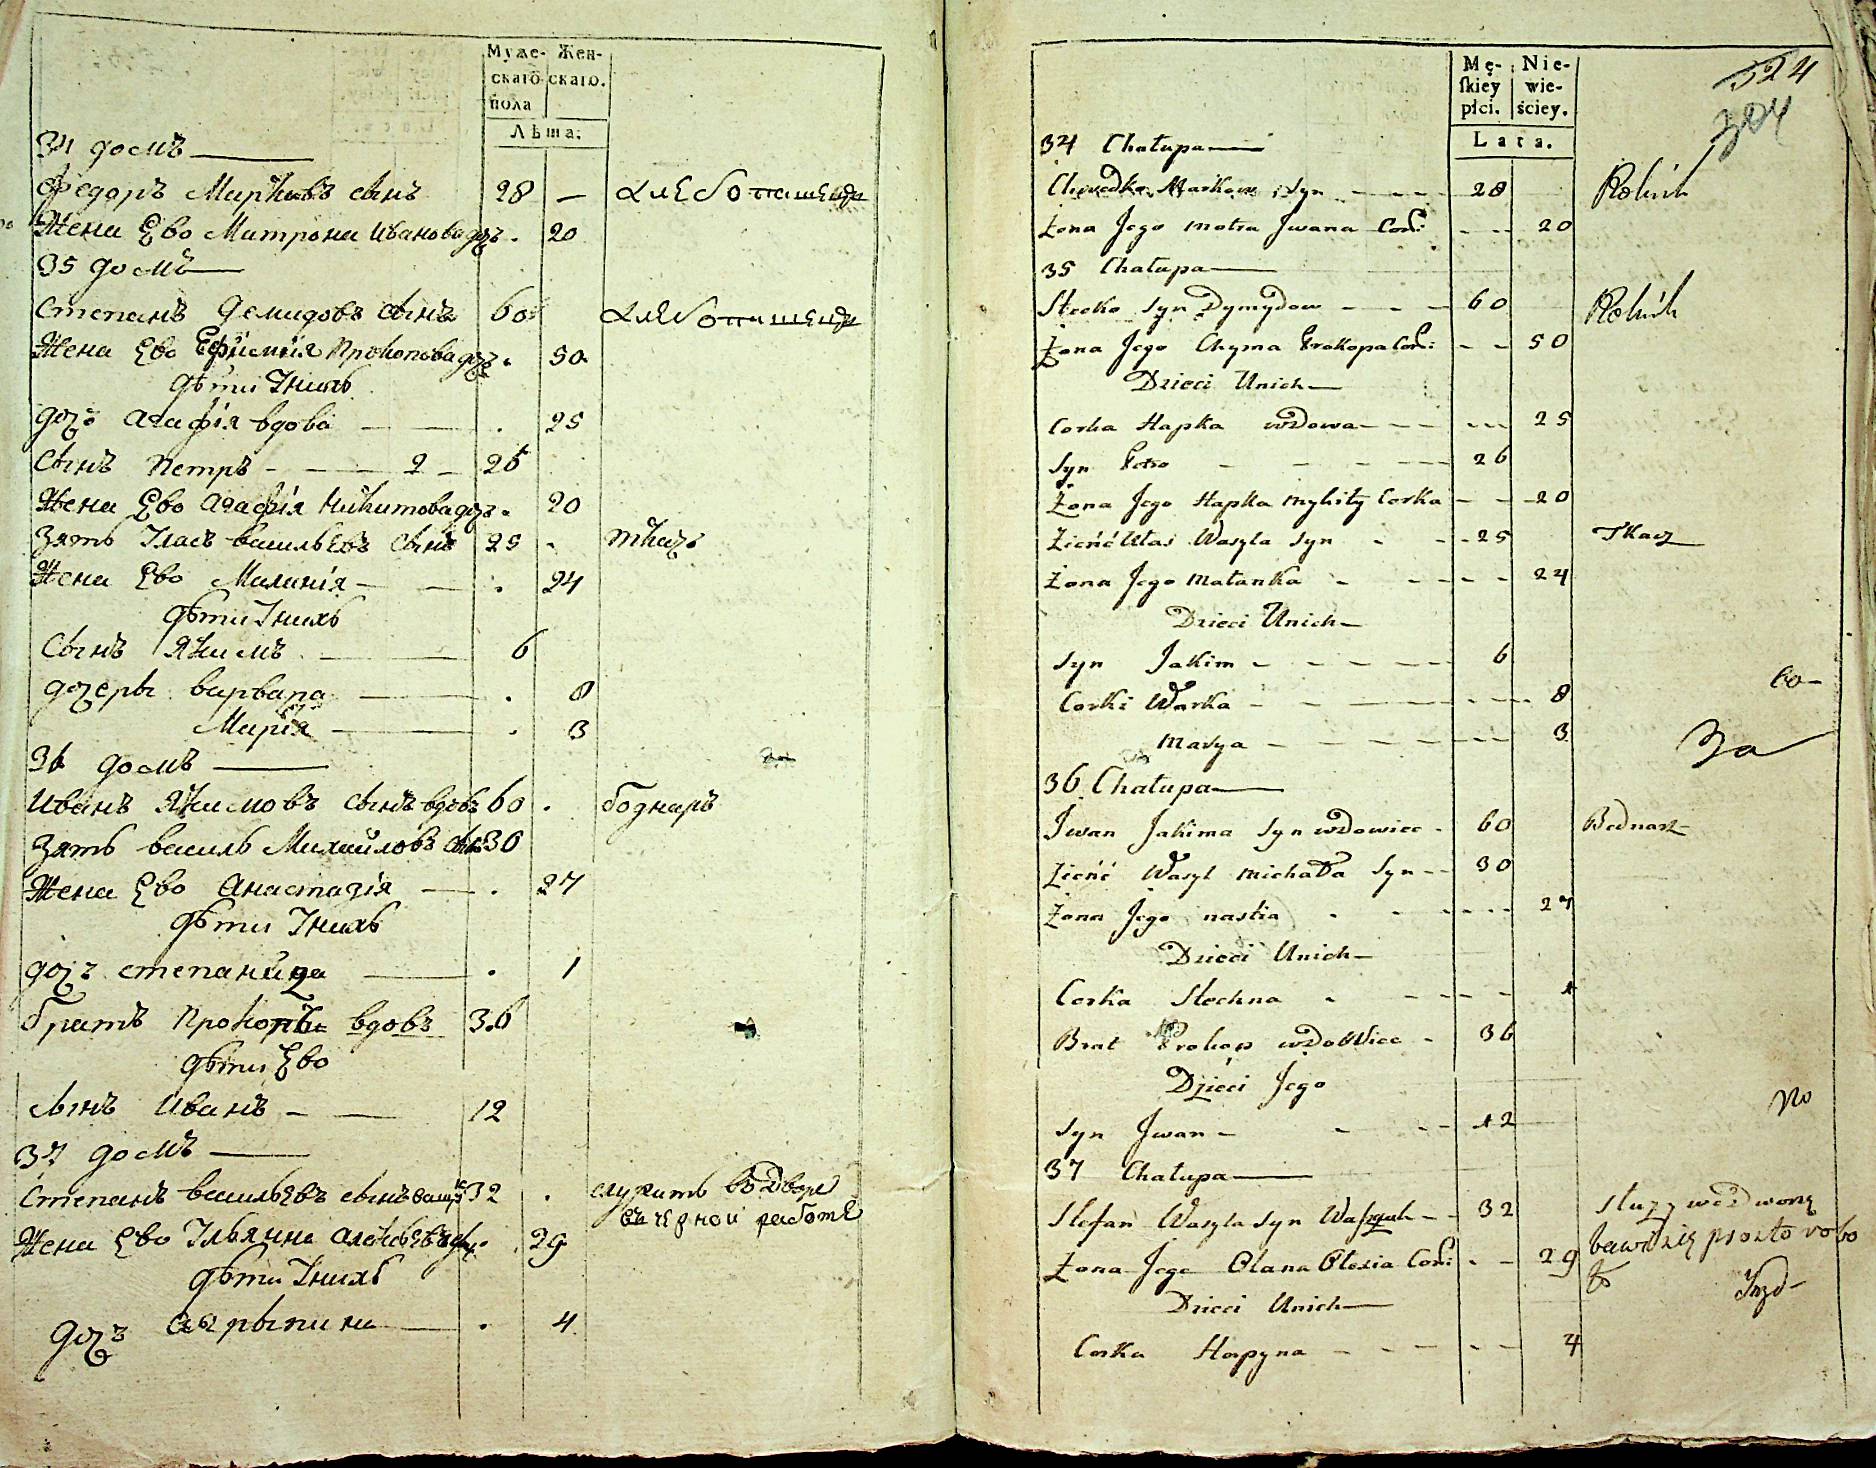 Муже- Жен-
скаго скаго.
пола
Лѣта.
34 домъ
Федоръ Марковъ сынъ 28 — хлебопашецъ
Жена Ево Матрона Иванова доч. 20
35 домъ
Степанъ Демидовъ сынъ 60 хлебопашецъ
Жена Ево Ефимия Прокопова доч. 50
дѣти Ихъ
доч. Агафія вдова — — . 25
Сынъ Петръ - — — 2 — 26
Жена Ево Агафія Никитова доч. 20
Зять Власъ Васильевъ Сынъ 25 - ткачъ
Жена Ево Миланія — — . 24
дѣти Ихъ
Сынъ Якимъ — 6
дочеры варвара — . 8
Марія — . 3
36 домъ
Иванъ Якимовъ сынъ вдовъ 60 . боднаръ
Зять василь Михайловъ сынъ 30
Жена Ево Анастазія — . 27
дѣти Ихъ
доч степанида — . 1
братъ Прокопъ вдовъ 36
дѣти Ево
сынъ Иванъ — — 12
37 домъ
Степанъ васильевъ сынъ 32 . служитъ во Дворе
въ черной работе
Жена Ево Ульяна . 29
дѣти Ихъ
доч — . 4
Mę- Nie-
skiey wie-
płci. ściey.
Lata.
524
304
34 Chałupa
Chwedko Markow Syn — — — 28 Rolnik
Zona Jego Motra Jwana Cor: - - - 20
35 Chałupa
Stecko Syn Dymydow — — — 60 Rolnik
Zona Jego Chyma Prokopa Cor: - - 50
Dzieci Unich
Corka Hapka wdowa - - - - - - 25
Syn Petro - - - - - 26
Zona Jego Hapka Mykity Corka - - - 20
Zieńć Ułas Wasyla Syn - - - 25 Tkacz
Zona Jego Małanka - - - - - 24
Dzieci Unich
Syn Jakim - - - - - - 6
Corki Warka - - - - - - 8
Co-
Marya - - - - - - - 3
Za
36 Chałupa
Jwan Jakima Syn wdowiec - 60 Bednarz
Zieńć Wasyl Michała Syn - - 30
Zona Jego nastia - - - - - - 27
Dzieci Unich
Corka Stechna - - - - - 1
Brat Prokop wdowiec - 36
Dzieci Jego
No
Syn Jwan - - - - - 12
37 Chałupa
Stefan Wasyla Syn - - 32 Służy we dworze
Zona Jego Olana Olexia Cor: - - 29
Dzieci Unich
Corka Horpyna - - - - - 4